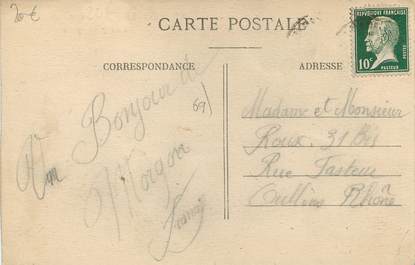 20€
CARTE POSTALE
REPUBLIQUE FRANÇAISE
10c
POSTES
PASTEUR
CORRESPONDANCE
ADRESSE
69
Un Bonjour de
Morgon
Madame et Monsieur
Roux. 31 Bis
Rue Pasteur
Oullins Rhône